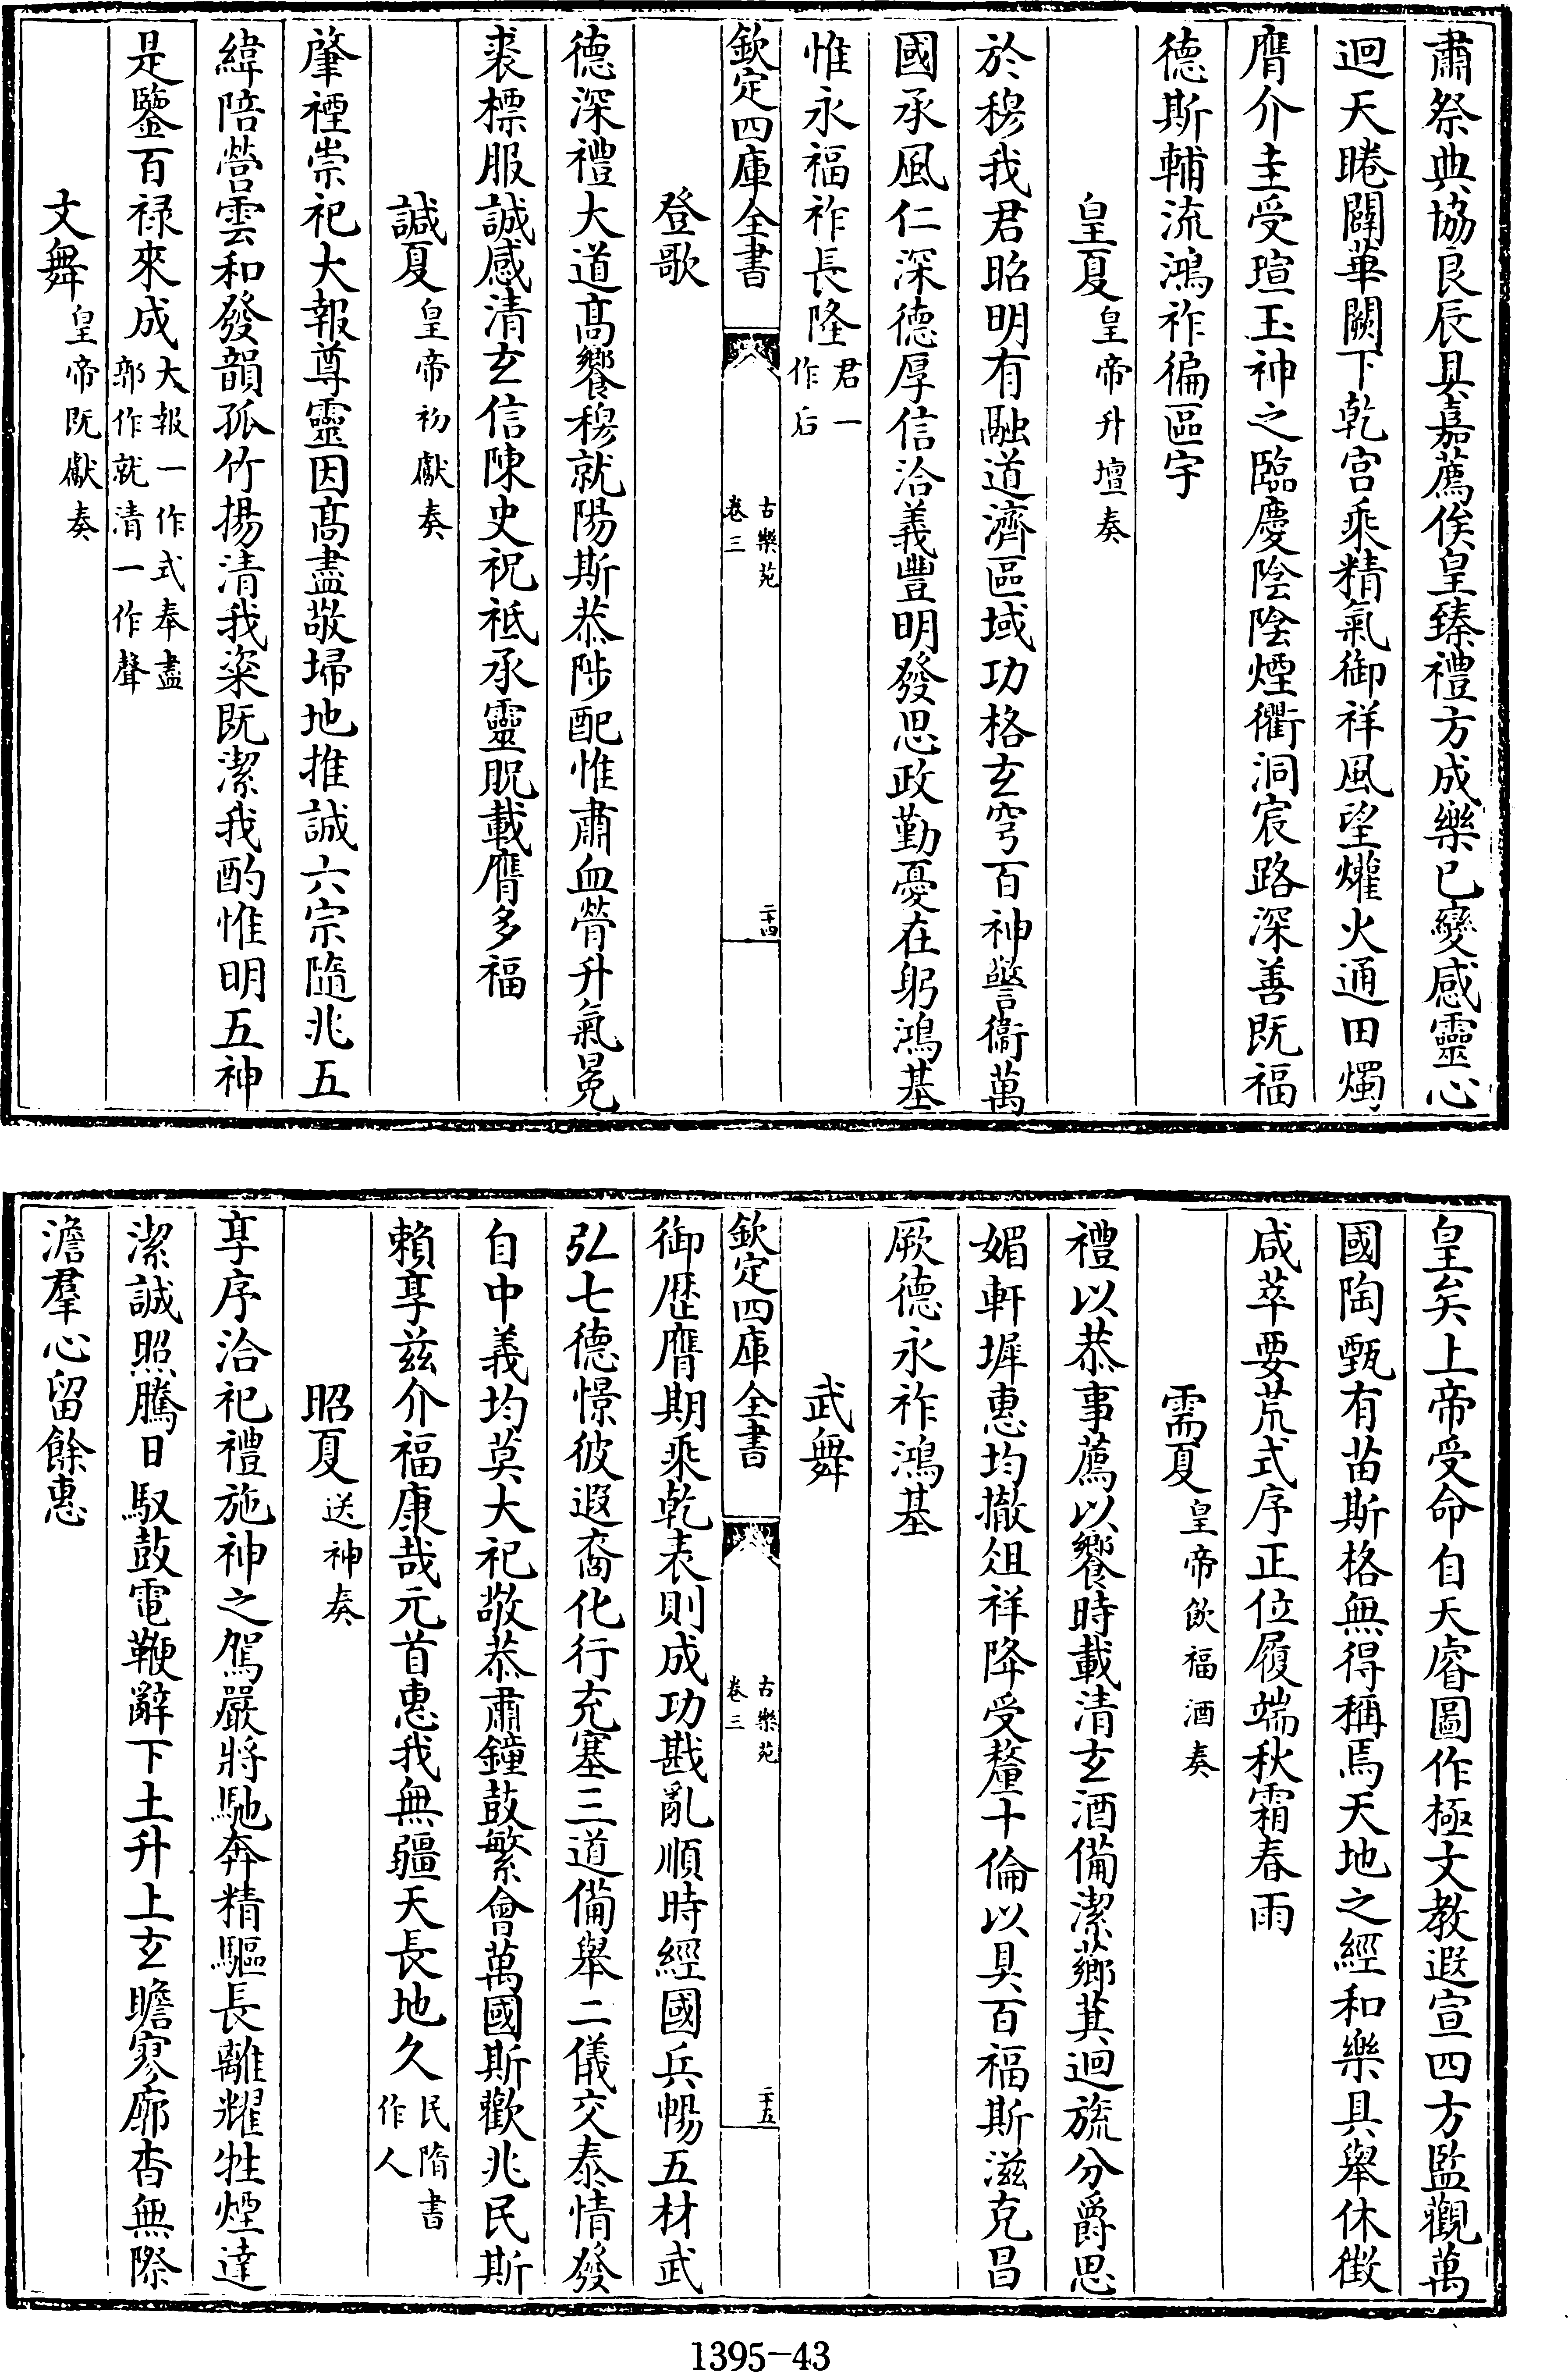 肅祭典協良辰具嘉薦俟皇臻禮方成樂已變感靈心
迴天睠闢華闕下乾宫乘精氣御祥風望爟火通田燭
膺介圭受瑄玉神之臨慶陰陰煙衢洞宸路深善既福
德斯輔流鴻祚徧區宇
皇夏皇帝升壇奏
於穆我君昭明有融道濟區域功格玄穹百神警衞萬
國承風仁深德厚信洽義豐明發思政勤憂在躬鴻基
惟永福祚長隆君一作后
欽定四庫全書
古樂苑
卷三
二十四
登歌
德深禮大道髙饗穆就陽斯恭陟配惟肅血膋升氣冕
裘標服誠感清玄信陳史祝祗承靈貺載膺多福
諴夏皇帝初獻奏
肇禋崇祀大報尊靈因髙盡敬埽地推誠六宗隨兆五
緯陪營雲和發韻孤竹揚清我粢既潔我酌惟明五神
是鑒百禄來成大報一作式奉盡郊作就清一作聲
文舞皇帝既獻奏
皇矣上帝受命自天睿圖作極文教遐宣四方監觀萬
國陶甄有苗斯格無得稱焉天地之經和樂具舉休徴
咸萃要荒式序正位履端秋霜春雨
需夏皇帝飲福酒奏
禮以恭事薦以饗時載清玄酒備潔薌萁迴旒分爵思
媚軒墀惠均撤俎祥降受釐十倫以具百福斯滋克昌
厥德永祚鴻基
武舞
欽定四庫全書
古樂苑
卷三
二十五
御歴膺期乘乾表則成功戡亂順時經國兵暢五材武
弘七德憬彼遐裔化行充塞三道備舉二儀交泰情發
自中義均莫大祀敬恭肅鐘鼓繁會萬國斯歡兆民斯
賴享兹介福康哉元首惠我無疆天長地久民隋書作人
昭夏送神奏
享序洽祀禮施神之駕嚴將馳奔精驅長離耀牲煙達
潔誠照騰日馭鼓電鞭辭下土升上玄瞻寥廓杳無際
澹羣心留餘惠
1395-43